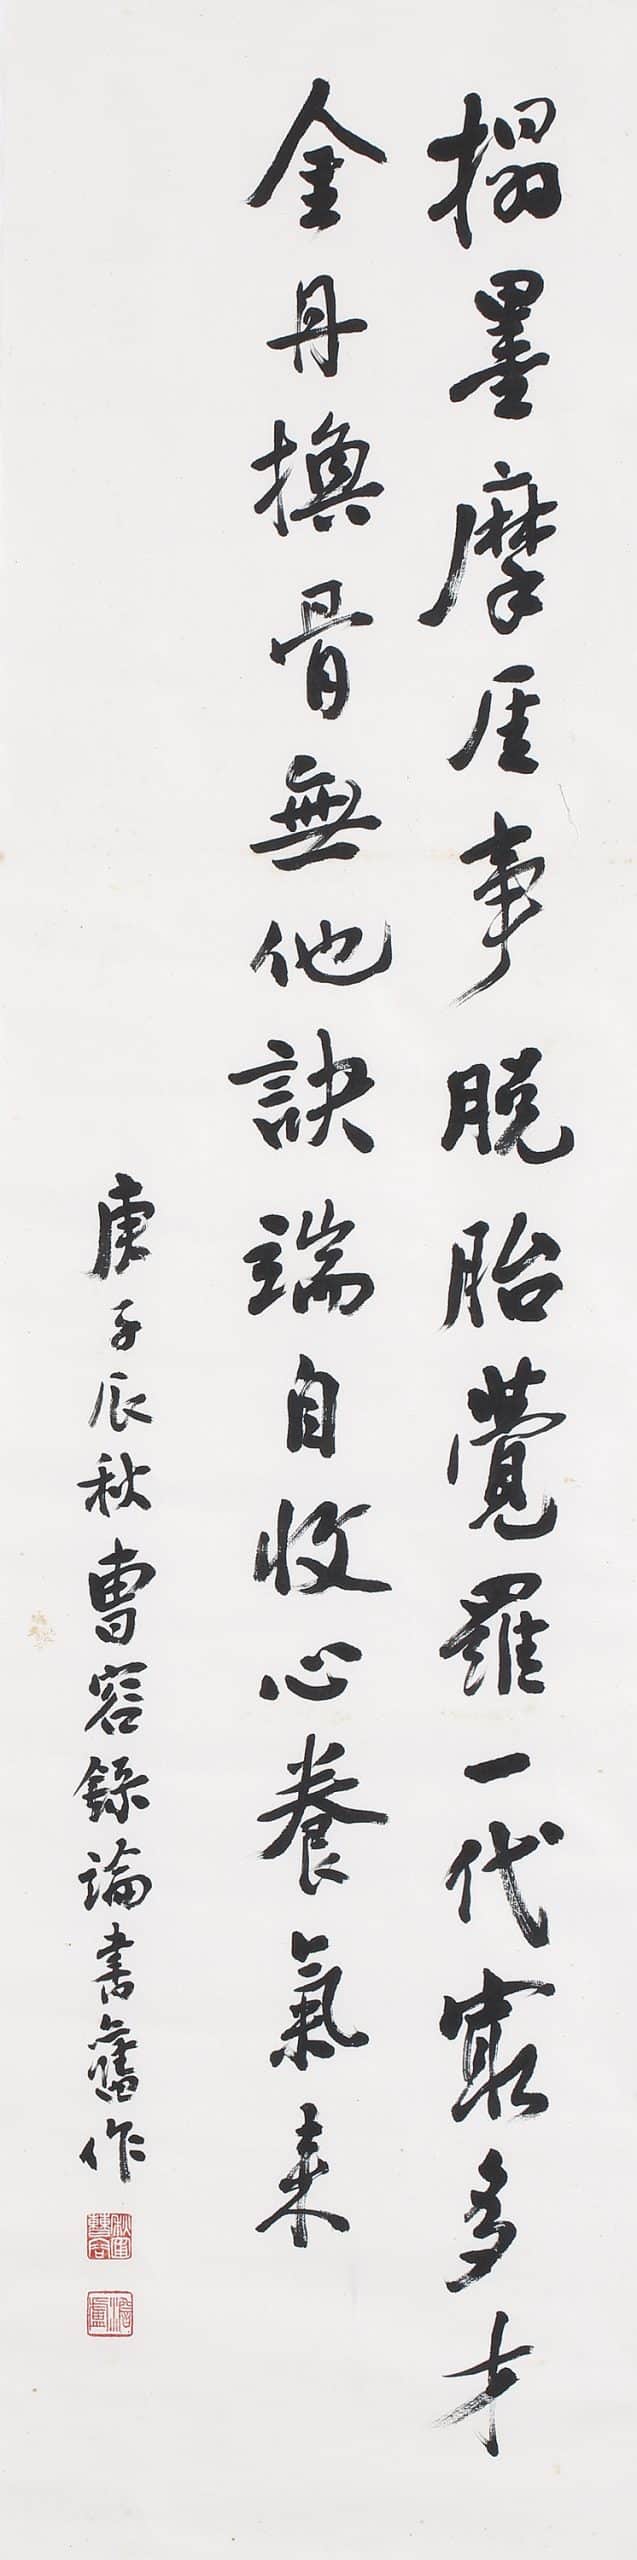 搨墨摩厓事脫胎覺羅一代㝡多才
金丹換骨無他訣端自收心養氣来
庚子辰秋曹容錄論書舊作